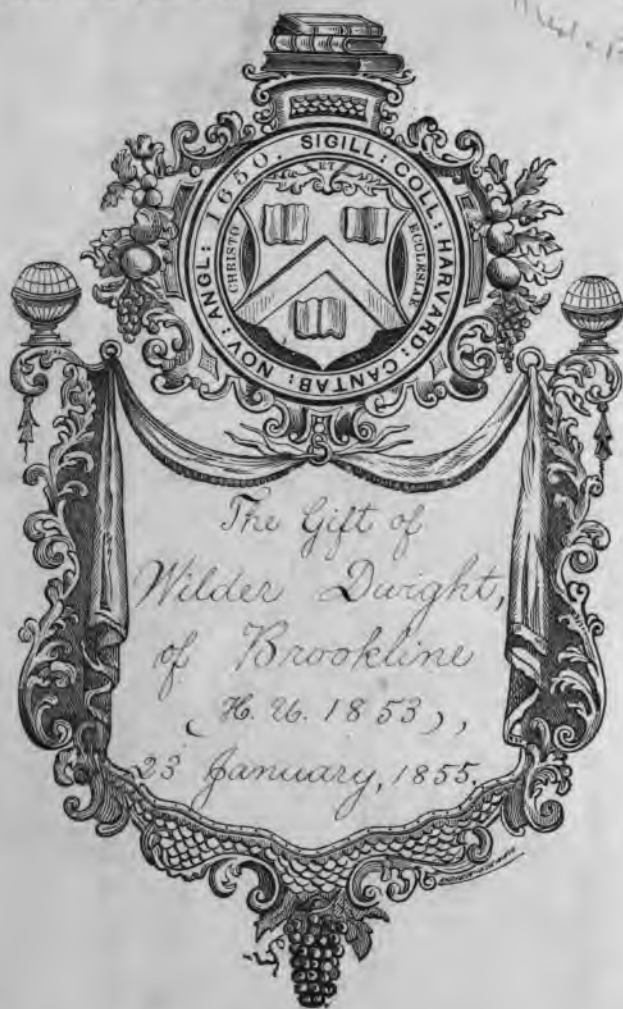 SIGILL: COLL: HARVARD: CANTAB: NOV: ANGL: 1650.
ET
CHRISTO
ECCLESIAE
The Gift of
Wilder Dwight,
of Brookline
(H. U. 1853),
23 January, 1855.